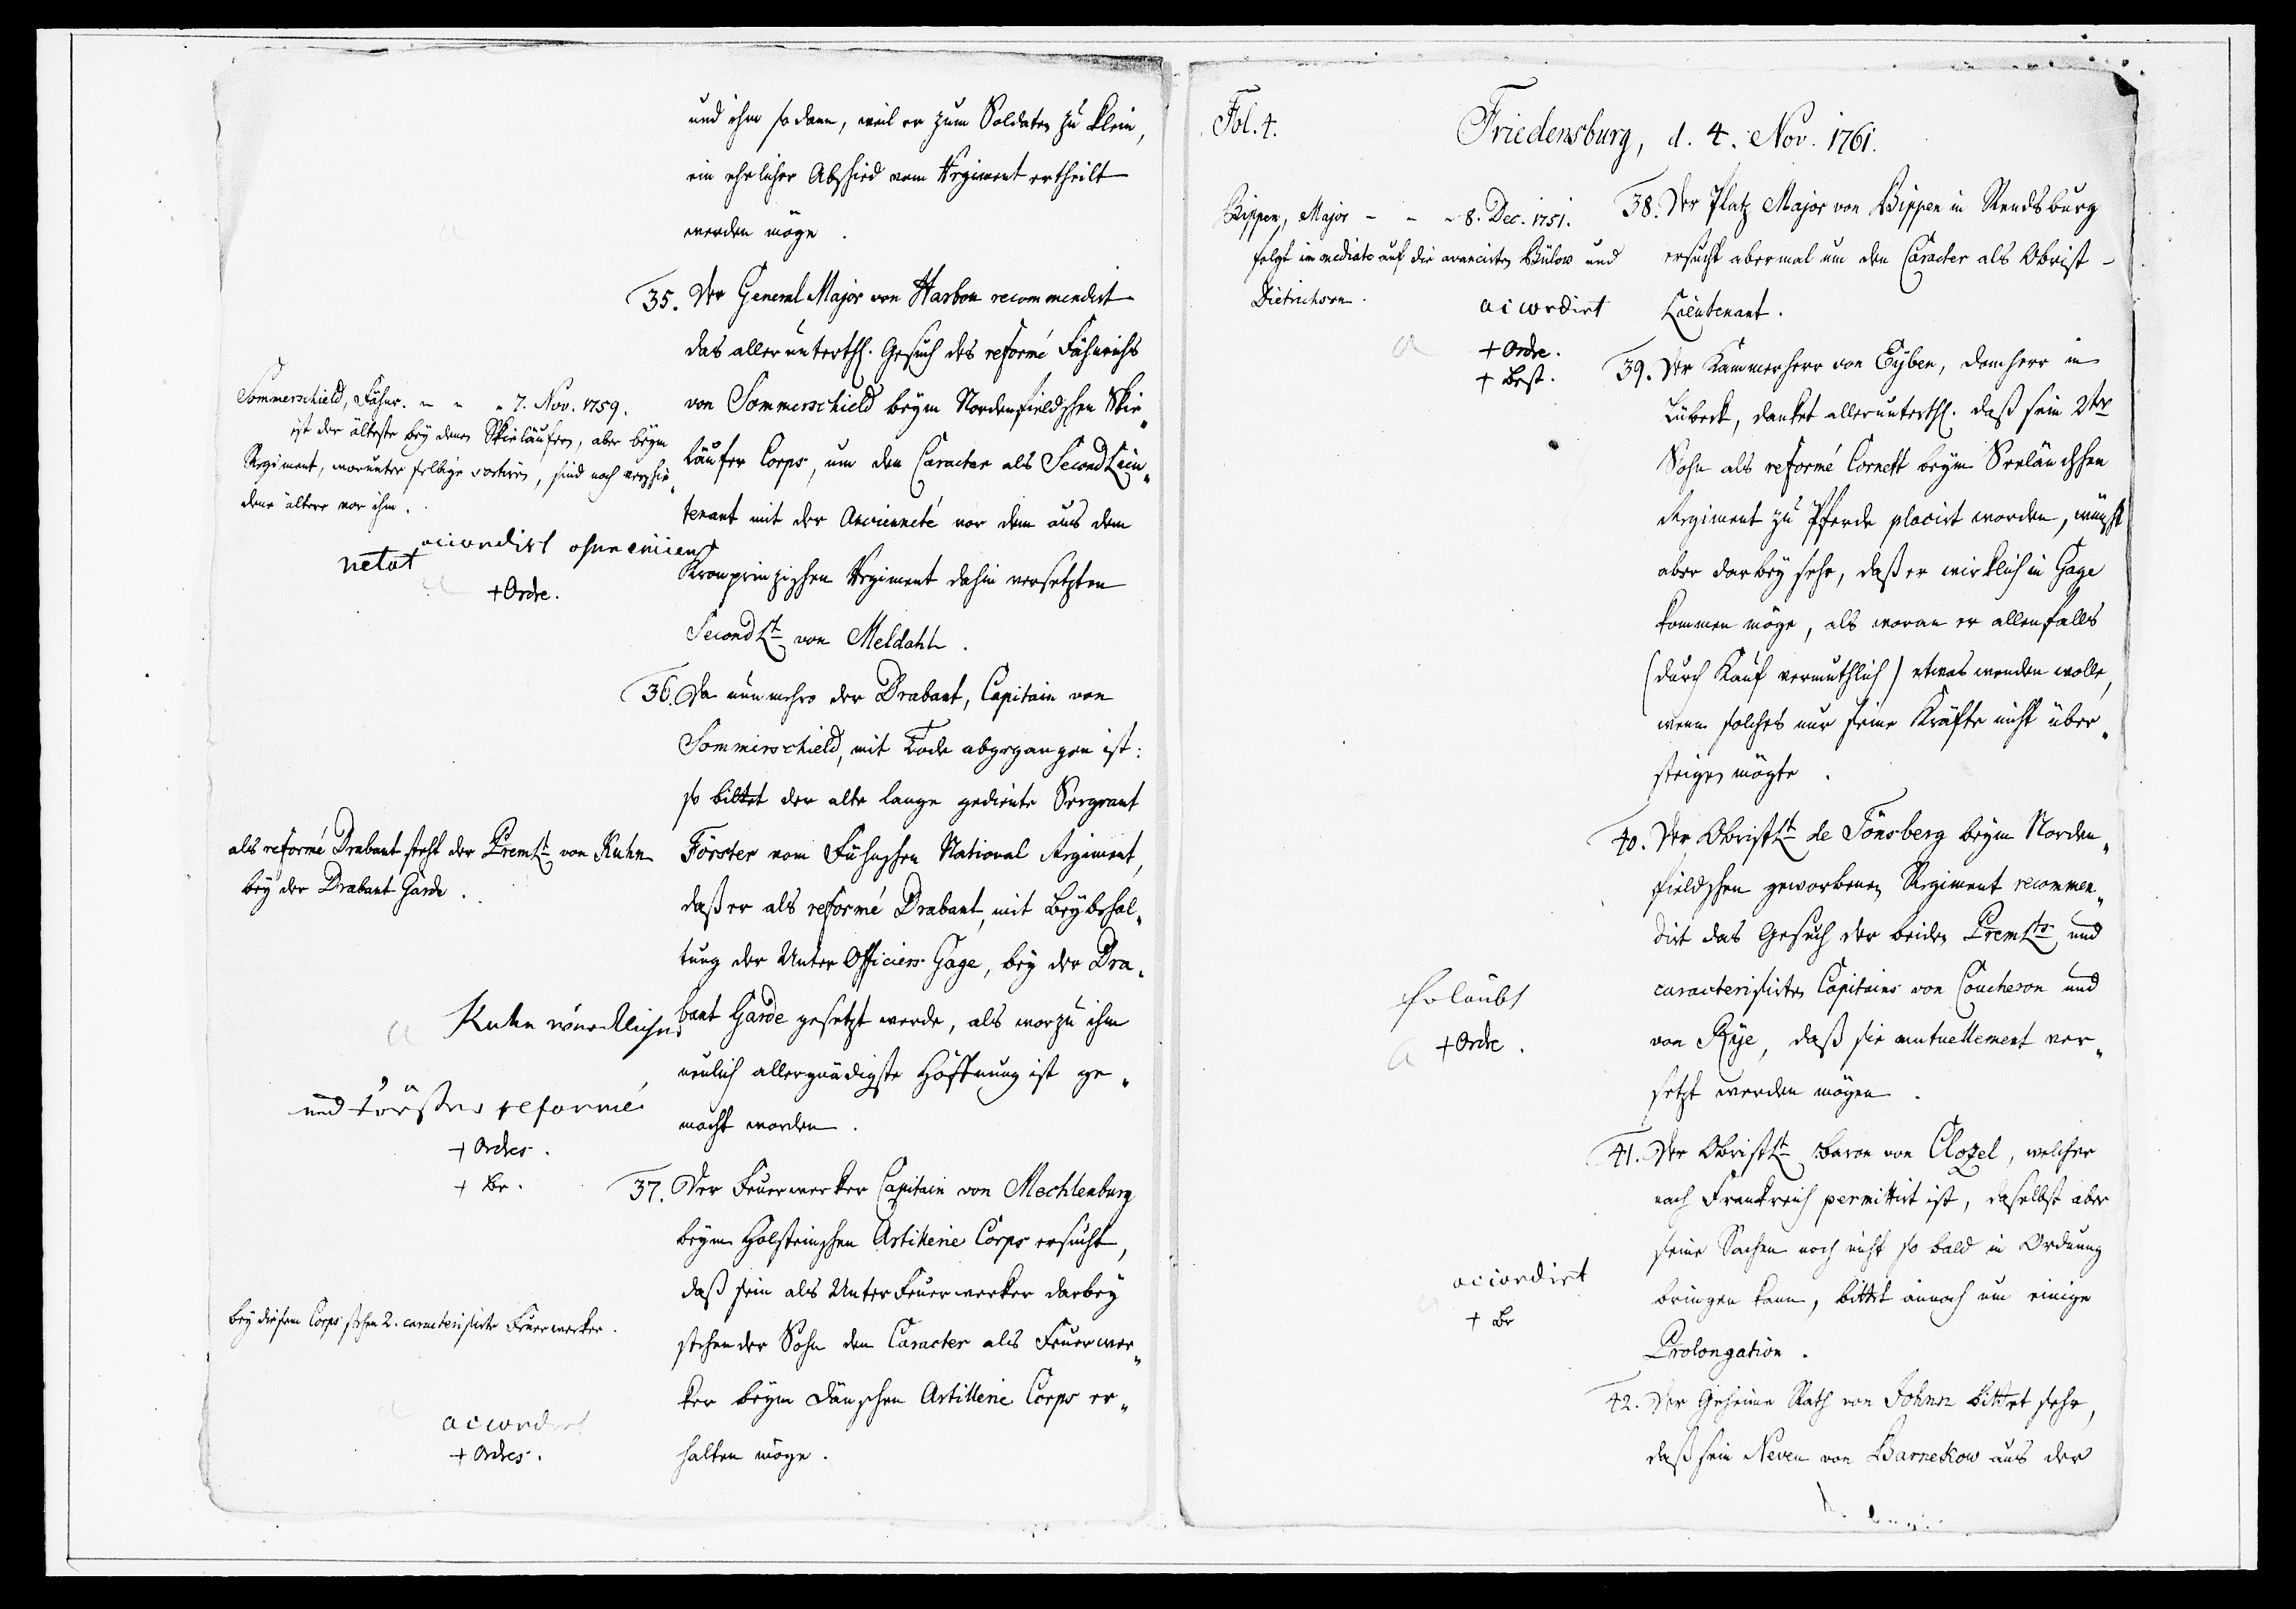 und ihm sodann, weil er zum Soldaten zu klein,
ein ehrlicher Abschied vom Regiment ertheilt
werden möge.
35. Der General Major von Harbou recommendirt
das allerunterth. Gesuch des reformé Fähnrichs
von Sommerschield beym Nordenfieldschen Skie„
läufer Corps, um den Caracter als Second Lieu„
tenant mit der Ancienneté vor dem aus dem
Kronprinzischen Regiment dahin versetzten
Second Lt. von Meldahl.
Sommerschield, Fähnr. - - - 7. Nov. 1759.
ist der älteste bey denen Skieläufern, aber beym
Regiment, worunter selbige sortiren, sind noch verschie„
dene ältere vor ihm.
accordirt ohne encien
netat
+ Ordre.
36. Da nunmehro der Drabant, Capitain von
Sommerschield, mit Tode abgegangen ist:
so bittet der alte lange gediente Sergeant
Förster vom Fühnschen National Regiment,
daß er als reformé Drabant, mit Beybehal„
tung der Unter Officiers Gage, bey der Dra„
bant Garde gesetzt werde, als worzu ihm
neulich allergnädigste Hoffnung ist ge„
macht worden.
als reformé Drabant steht der Prem Lt. von Kuhn
bey der Drabant Garde.
Kuhn würcklicher
und Förster reformé
+ Ordres.
+ Br.
37. Der Feuerwerker Capitain von Mechlenburg
beym Holsteinschen Artillerie Corps ersucht,
daß sein als Unter Feuerwerker darbey
stehender Sohn den Caracter als Feuerwer„
ker beym Dänschen Artillerie Corps er„
halten möge.
bey diesem Corps stehen 2. caracterisirte Feuerwerker.
accordirt
+ Ordres.
Fol. 4.
Friedensburg, d. 4. Nov. 1761.
38. Der Platz Major von Bippen in Rendsburg
ersucht abermal um den Caracter als Obrist-
Lieutenant.
Bippen, Major - - - 8. Dec. 1751.
folgt immediate auf die avancirten Bülow und
Dietrichson.
accordirt
+ Ordre.
+ Best.
39. Der Kammerherr von Eyben, Domherr in
Lübeck, danket allerunterth. daß sein 2ter
Sohn als reformé Cornett beym Seeländschen
Regiment zu Pferde placirt worden, wünscht
aber darbey sehr, daß er wirklich in Gage
kommen möge, als woran er allenfalls
(durch Kauf vermuthlich) etwas wenden wolle,
wenn solches nur seine Kräfte nicht über„
steigen mögte.
40. Der Obrist Lt. de Tönsberg beym Norden„
fieldschen geworbenen Regiment recommen„
dirt das Gesuch der beiden Prem Lts. und
caracterisirten Capitains von Coucheron und
von Rye, daß sie mutuellement ver„
setzt werden mögen.
Erlaubt
+ Ordre.
41. Der Obrist Lt. Baron von Clozel, welcher
nach Frankreich permittirt ist, daselbst aber
seine Sachen noch nicht so bald in Ordnung
bringen kann, bittet annoch um einige
Prolongation.
accordirt
+ Br
42. Der Geheime Rath von Johnn bittet sehr,
daß sein Neveu von Barnekow aus der